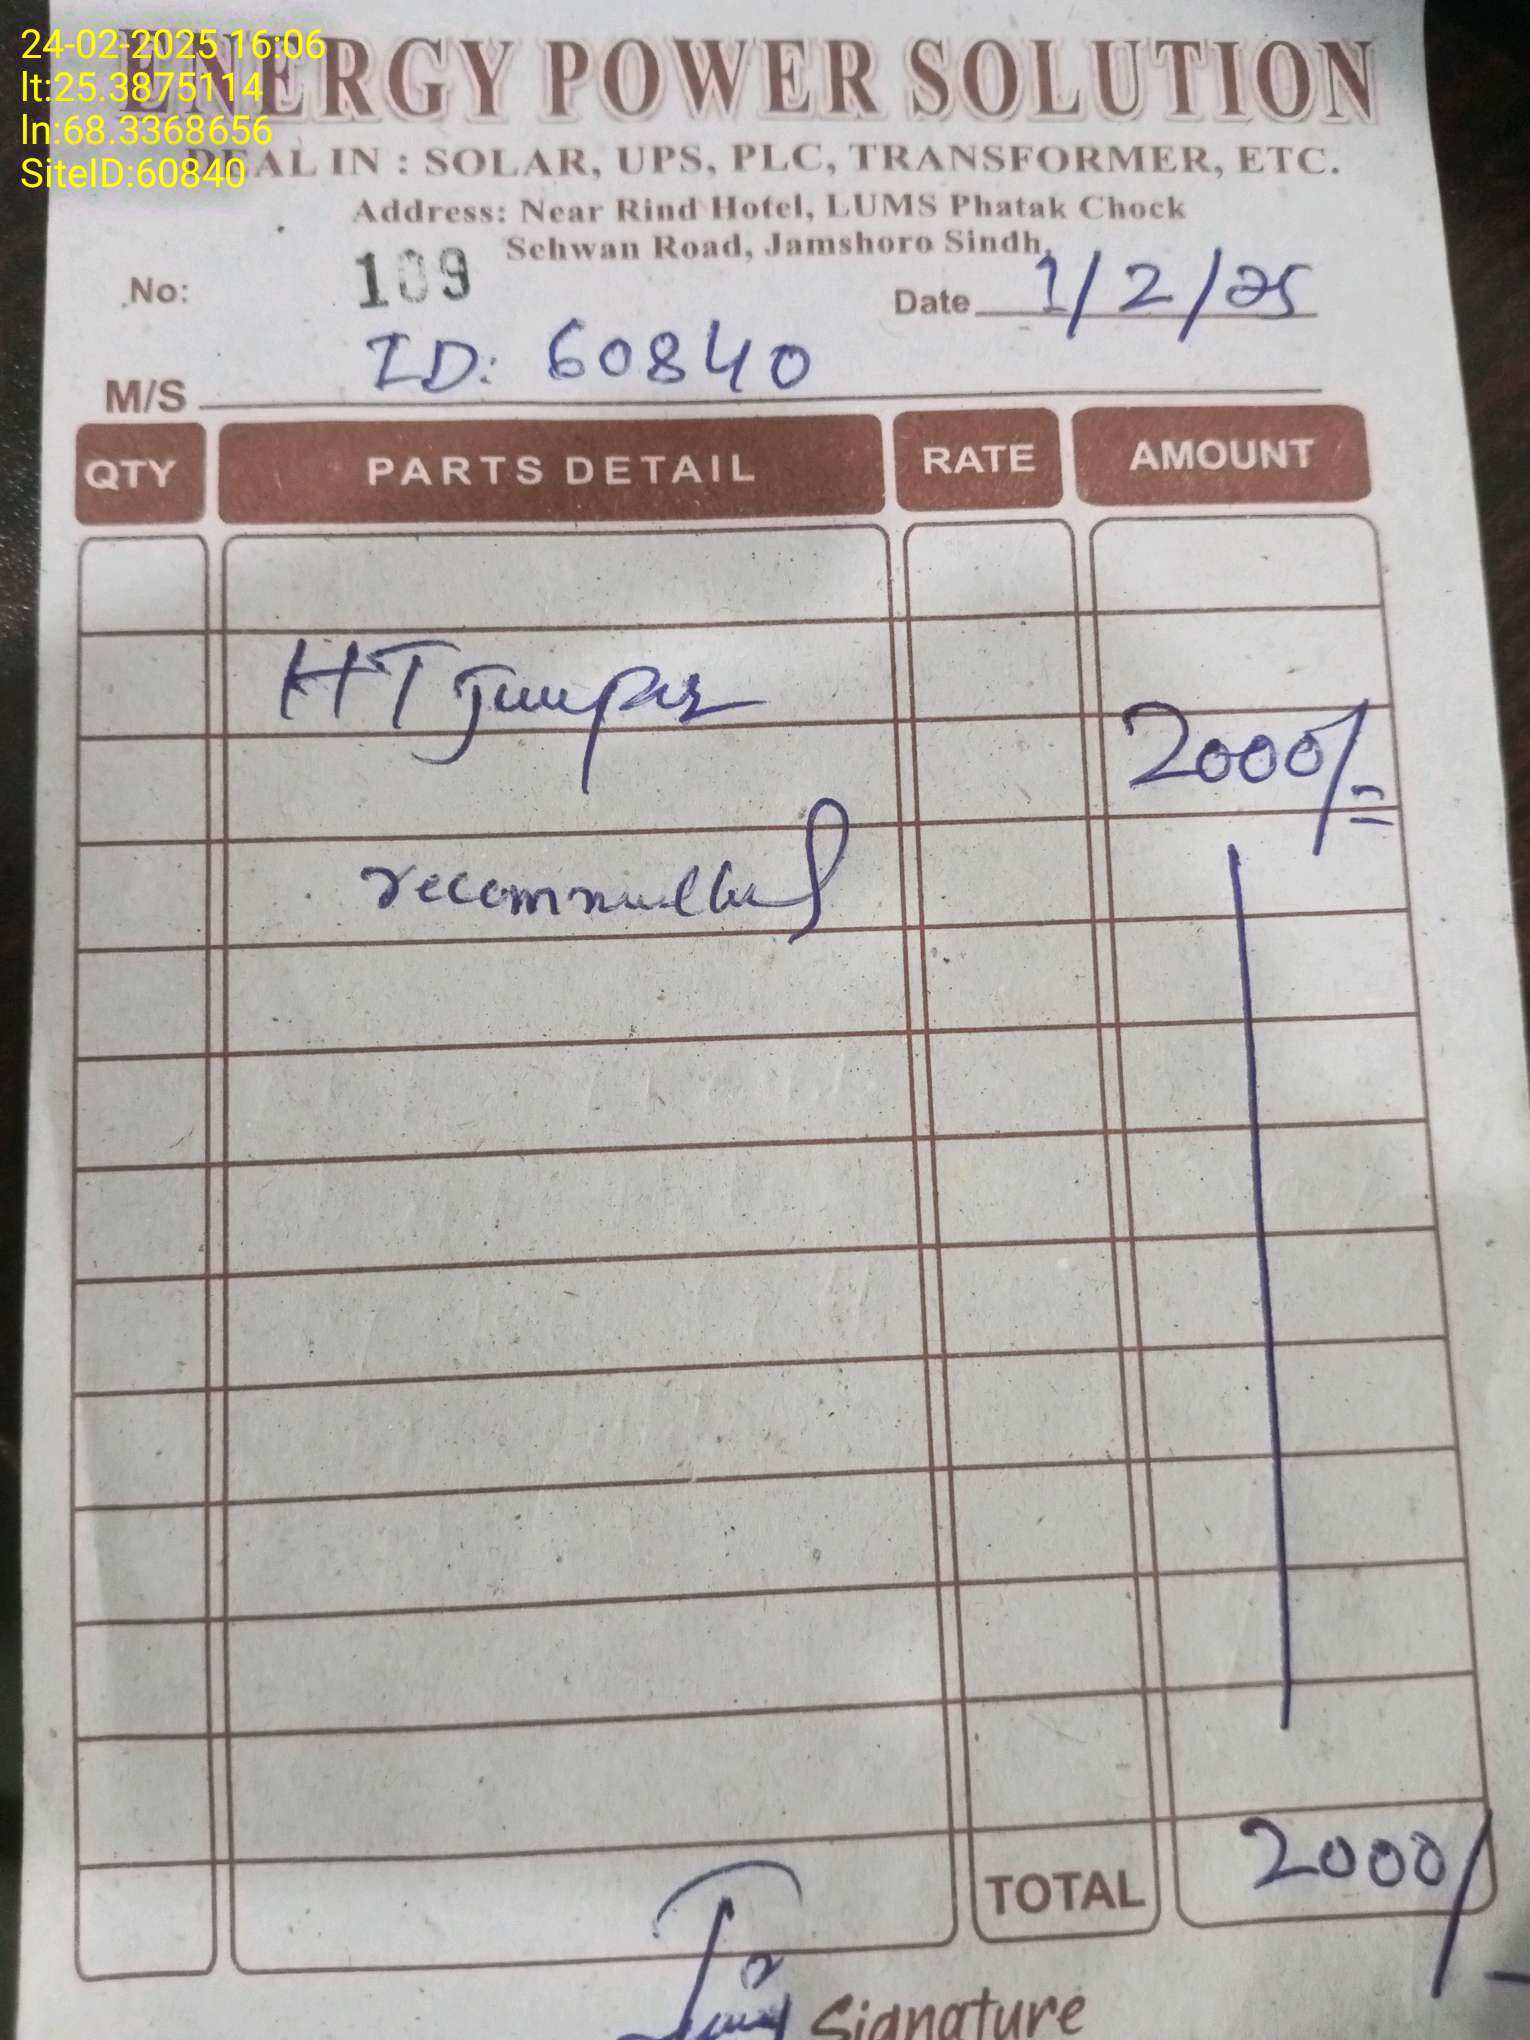 24-02-2025 16:06
lt:25.3875114
ln:68.3368656
SiteID:60840
ENERGY POWER SOLUTION
DEAL IN : SOLAR, UPS, PLC, TRANSFORMER, ETC.
Address: Near Rind Hotel, LUMS Phatak Chock
Sehwan Road, Jamshoro Sindh.
No: 109
Date 1/2/25
M/S ID: 60840
QTY PARTS DETAIL RATE AMOUNT
HT Jumper
2000/=
TOTAL 2000/-
Signature